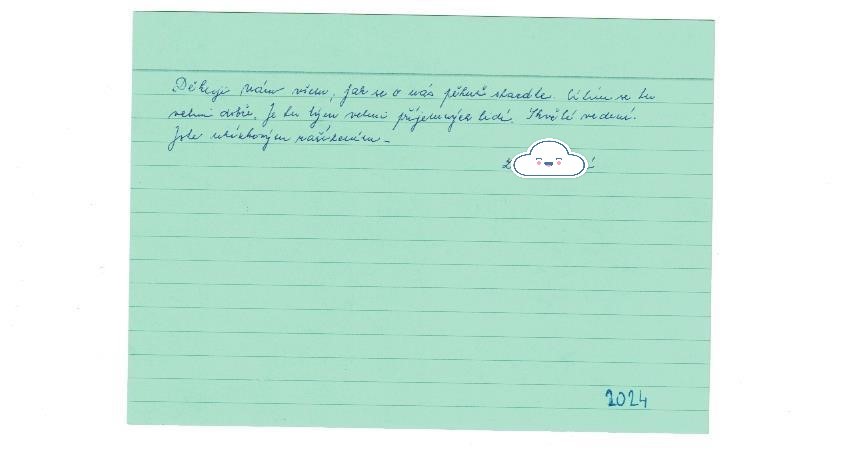 Děkuji vám všem, jak se o nás pěkně staráte. Cítím se tu
velmi dobře. Je tu tým velmi příjemných lidí. Skvělé vedení.
Jste
2024